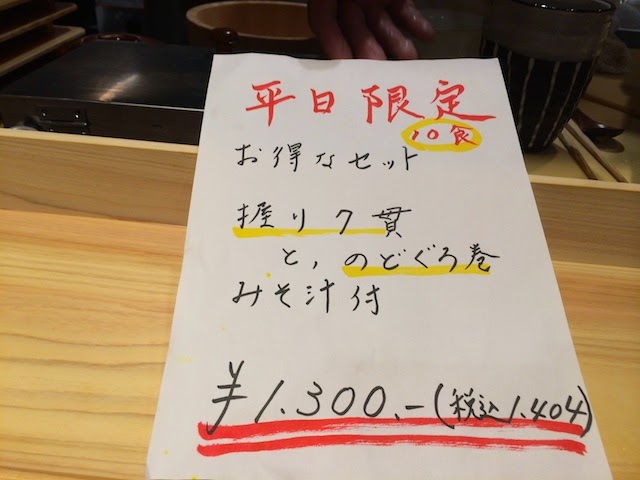 平日限定
10食
お得なセット
握り7貫
と,のどぐろ巻
みそ汁付
¥1.300.-(税込1.404)